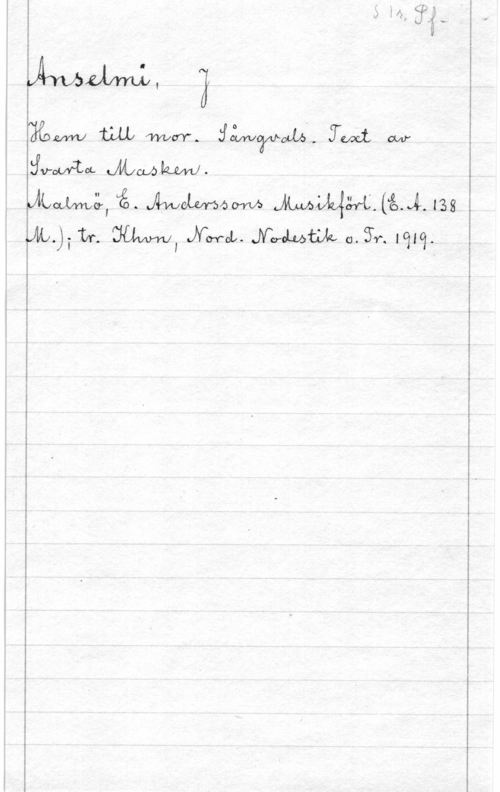 S 1 st. Pf.
Anselmi, J
Hem till mor. Sångvals. Text av
Svarta Masken.
Malmö, E. Anderssons Musikförl. (E. A. 138
M.); tr. Khvn, Nord. Nodestik o. Tr. 1919.